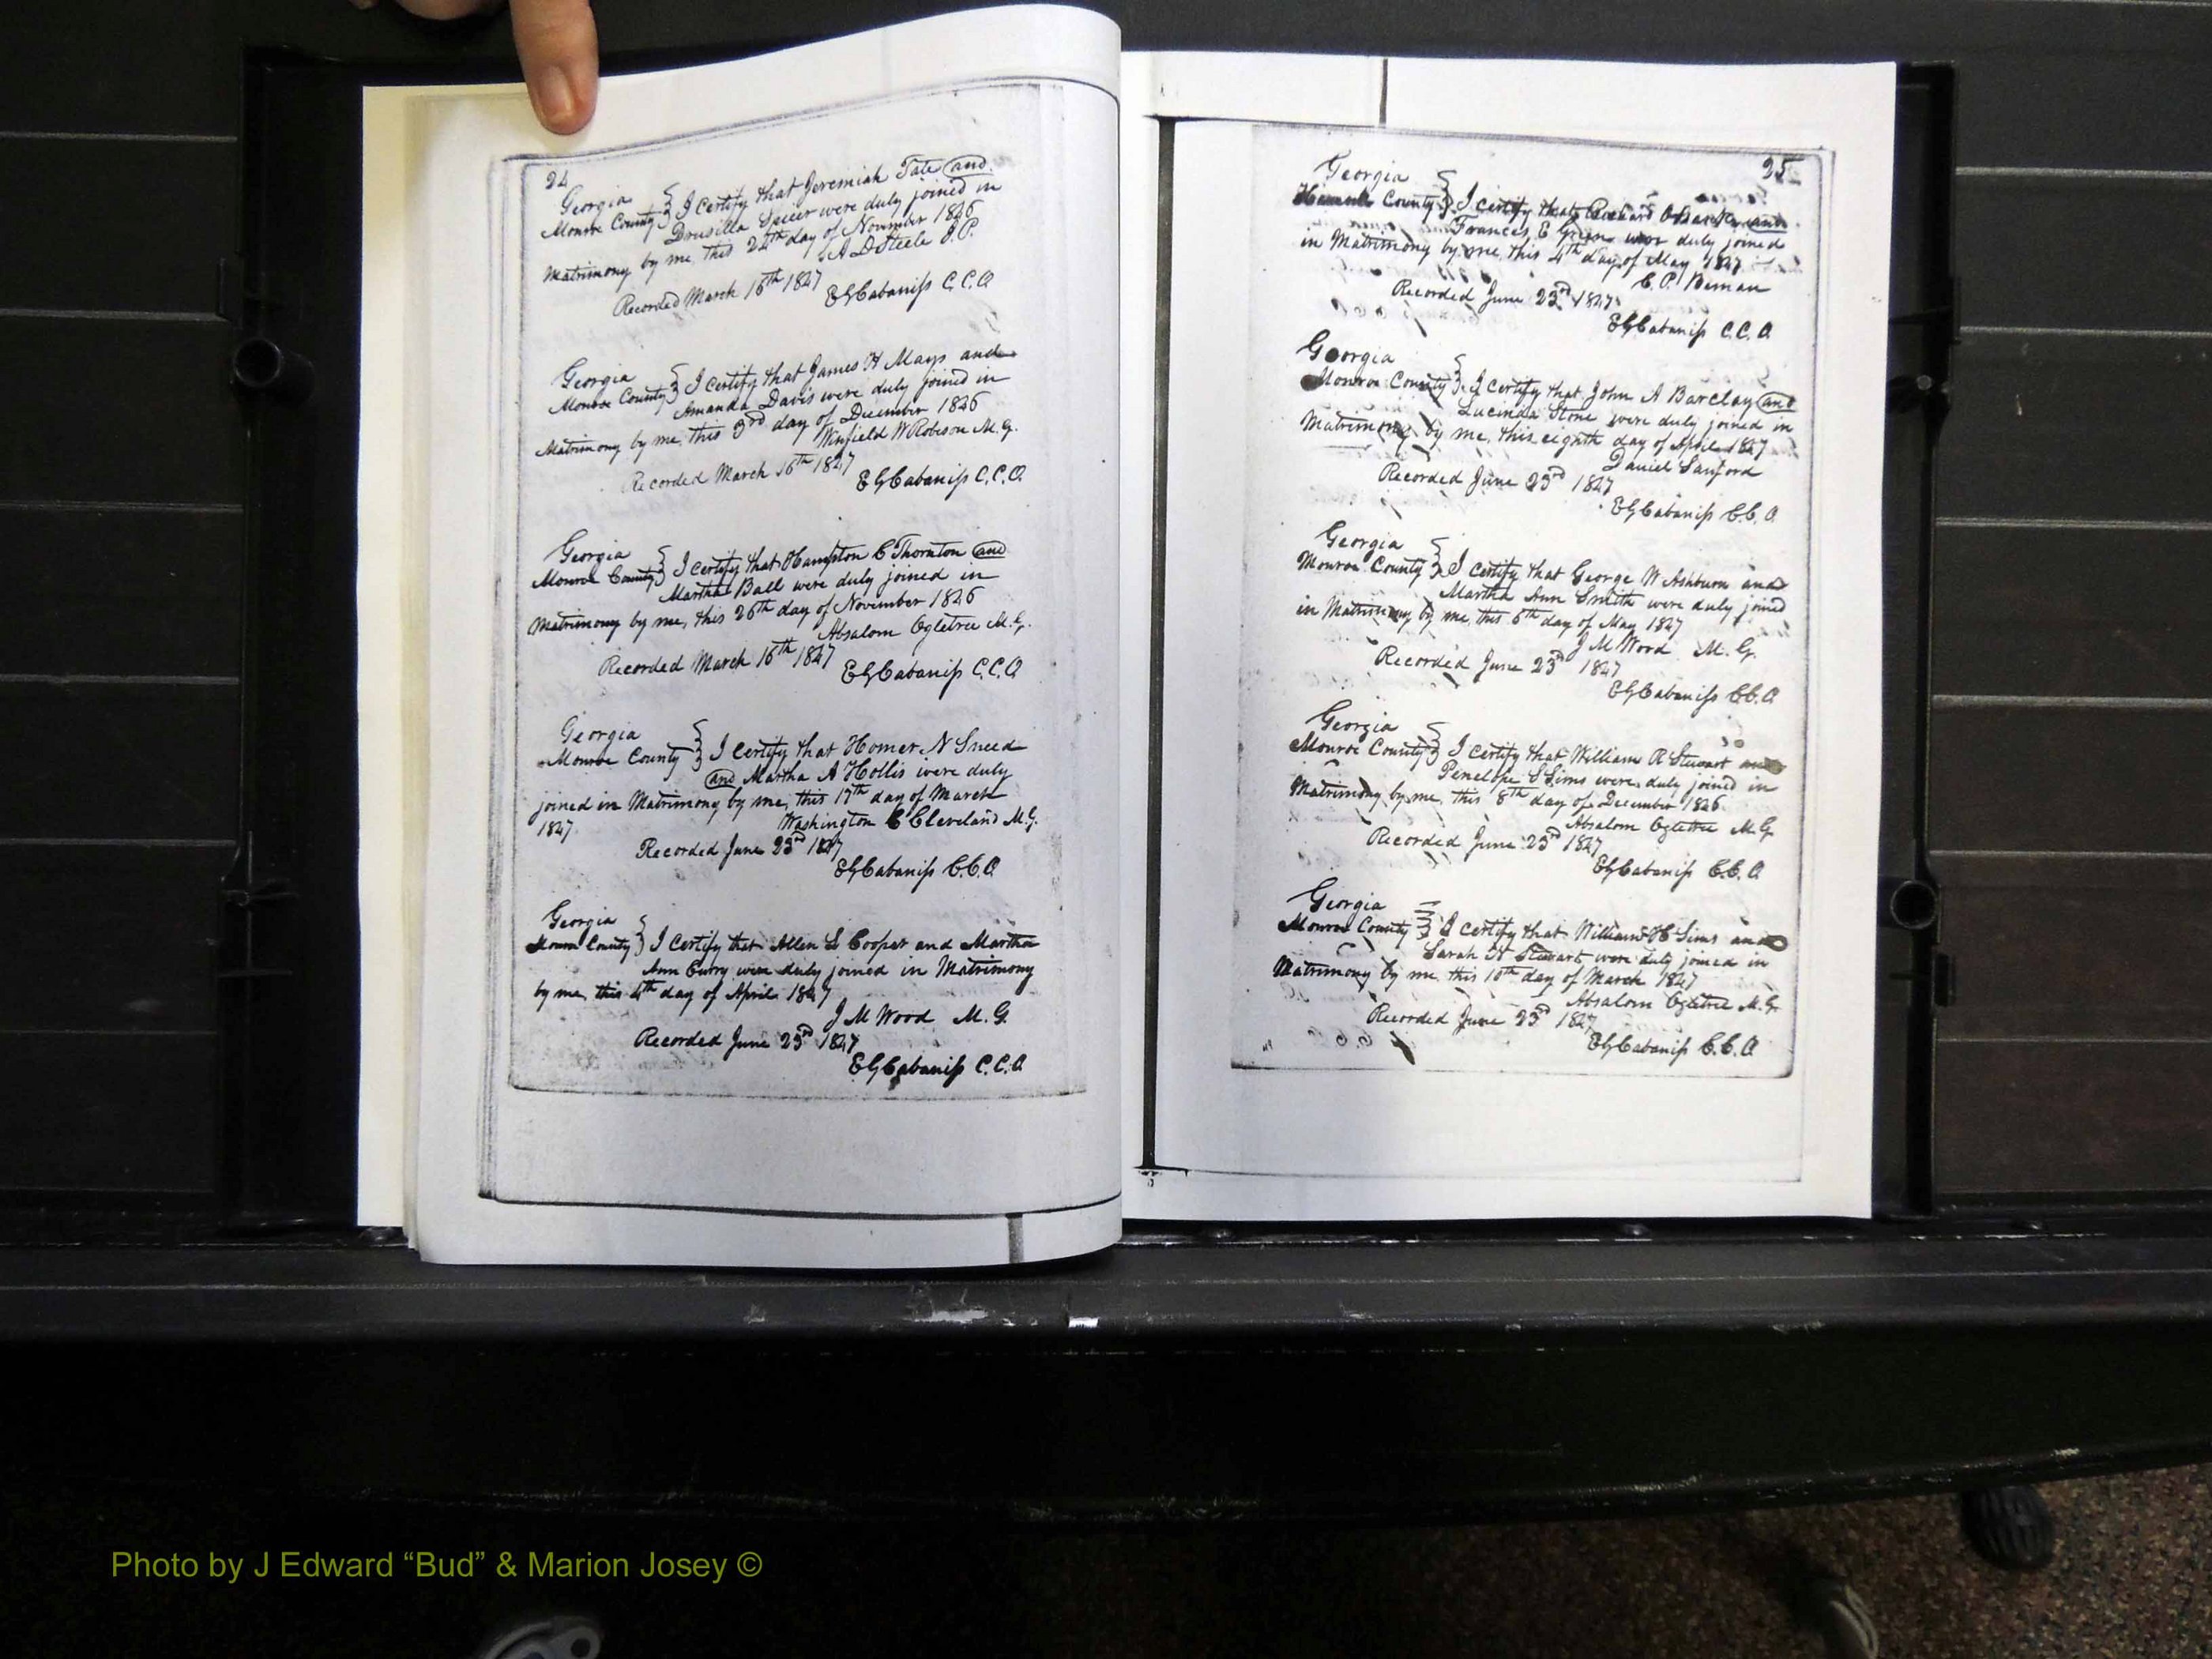 24
Georgia
Monroe County } I certify that Jeremiah Tate and
Drusilla Spicer were duly joined in
Matrimony by me, this 24th day of November 1846
A D Steele J.P.
Recorded March 16th 1847
E G Cabaniss C.C.O.
Georgia
Monroe County } I certify that James H Mays and
Amanda Davis were duly joined in
Matrimony by me, this 3rd day of December 1846
Winfield W Robison M.G.
Recorded March 16th 1847
E G Cabaniss C.C.O.
Georgia
Monroe County } I certify that Hampton C Thornton and
Martha Ball were duly joined in
Matrimony by me, this 26th day of November 1846
Absalom Ogletree M.G.
Recorded March 16th 1847
E G Cabaniss C.C.O
Georgia
Monroe County } I certify that Homer N Sneed
and Martha A Hollis were duly
joined in Matrimony by me, this 17th day of March
1847. Washington C Cleveland M.G.
Recorded June 23rd 1847
E G Cabaniss C.C.O.
Georgia
Monroe County } I certify that Allen S Cooper and Martha
Ann Curry were duly joined in Matrimony
by me, this 4th day of April 1847
J M Wood M.G.
Recorded June 23rd 1847
E G Cabaniss C.C.O
25
Georgia
County } I certify that Richard and
Frances E Green were duly joined
in Matrimony by me, this 4th day of May 1847
C. P. Beman
Recorded June 23rd 1847
E G Cabaniss C.C.O
Georgia
Monroe County } I certify that John A Barclay and
Lucinda Stone were duly joined in
Matrimony by me, this eighth day of April 1847
Daniel Sanford
Recorded June 23rd 1847
E G Cabaniss C.C.O
Georgia
Monroe County } I certify that George W Ashburn and
Martha Ann Smith were duly joined
in Matrimony by me, this 6th day of May 1847
J M Wood M.G.
Recorded June 23rd 1847
E G Cabaniss C.C.O
Georgia
Monroe County } I certify that William R Stewart and
Penelope S Sims were duly joined in
Matrimony by me, this 8th day of December 1846
Absalom Ogletree M.G.
Recorded June 23rd 1847
E G Cabaniss C.C.O
Georgia
Monroe County } I certify that William H Sims and
Sarah N Stewart were duly joined in
Matrimony by me this 10th day of March 1847
Absalom Ogletree M.G.
Recorded June 23rd 1847
E G Cabaniss C.C.O
Photo by J Edward “Bud” & Marion Josey ©